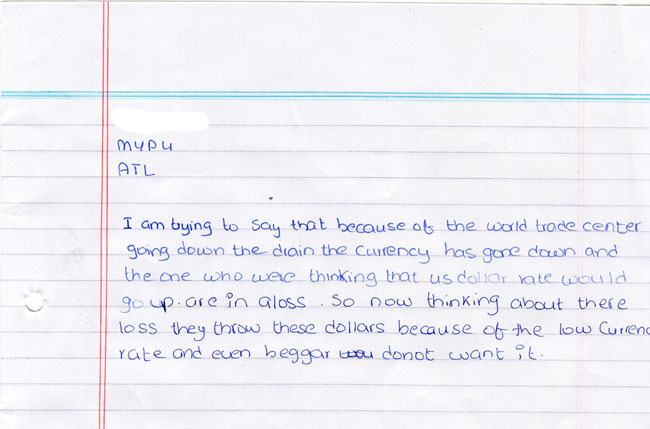 MYP4
ATL
I am trying to say that because of the world trade center
going down the drain the currency has gone down and
the one who were thinking that us dollar rate would
go up. are in a loss. So now thinking about there
loss they throw these dollars because of the low Currenc
rate and even beggar donot want it.